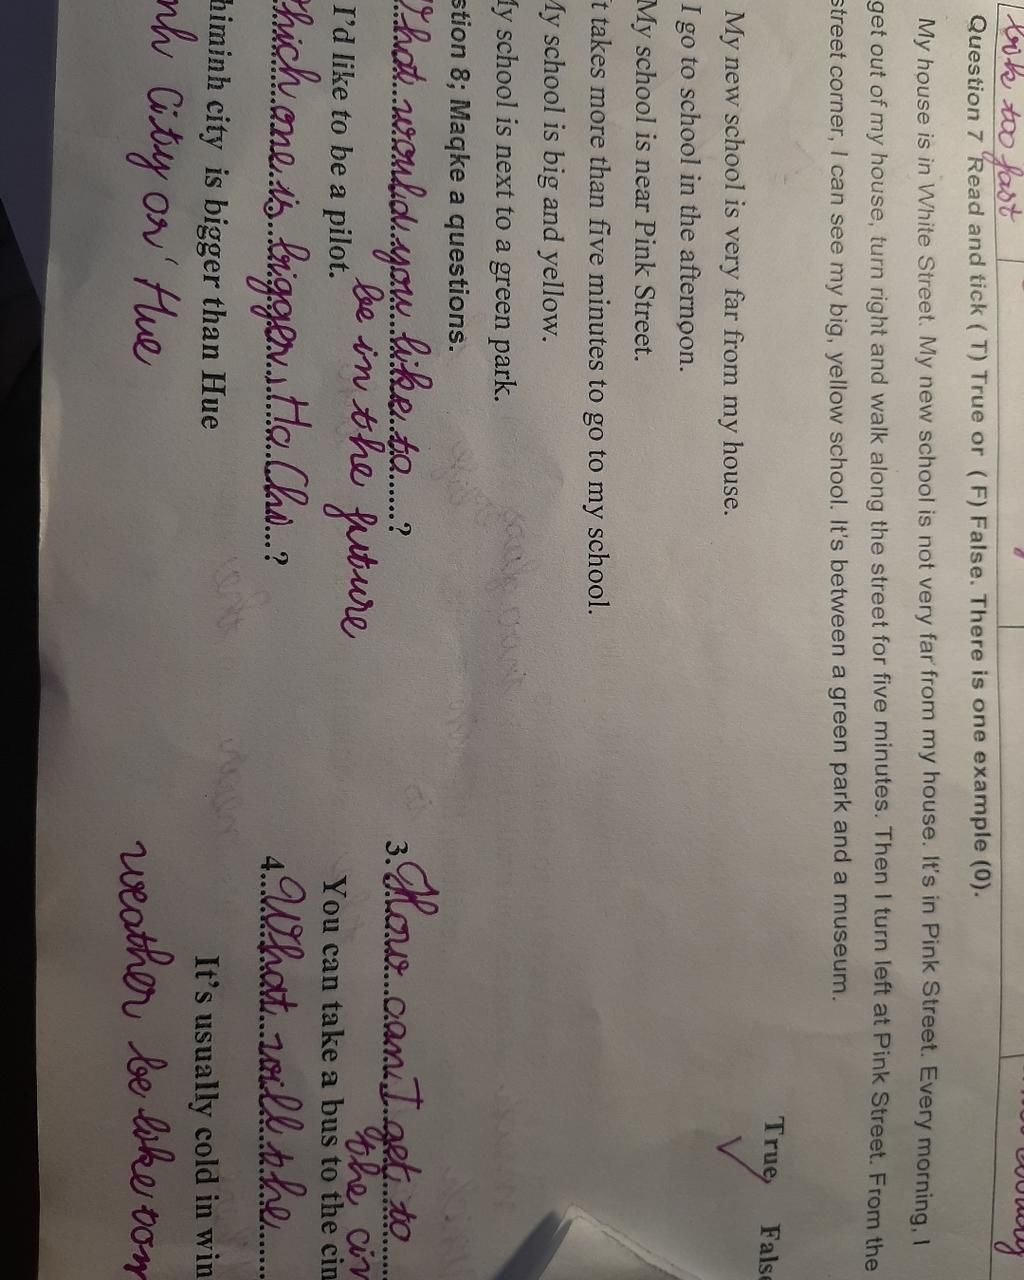 look too fast
Question 7 Read and tick ( T) True or ( F) False. There is one example (0).
My house is in White Street. My new school is not very far from my house. It's in Pink Street. Every morning, I
get out of my house, turn right and walk along the street for five minutes. Then I turn left at Pink Street. From the
street corner, I can see my big, yellow school. It's between a green park and a museum.
True False
My new school is very far from my house. ✓
I go to school in the afternoon.
My school is near Pink Street.
t takes more than five minutes to go to my school.
My school is big and yellow.
My school is next to a green park.
stion 8; Maqke a questions.
What would you like to......?
be in the future
I'd like to be a pilot.
which one is bigger, Ho Chi....?
himinh city is bigger than Hue
nh City or Hue
3. How can I get to
the cin
You can take a bus to the cin
4. What will the
It's usually cold in win
weather be like tom